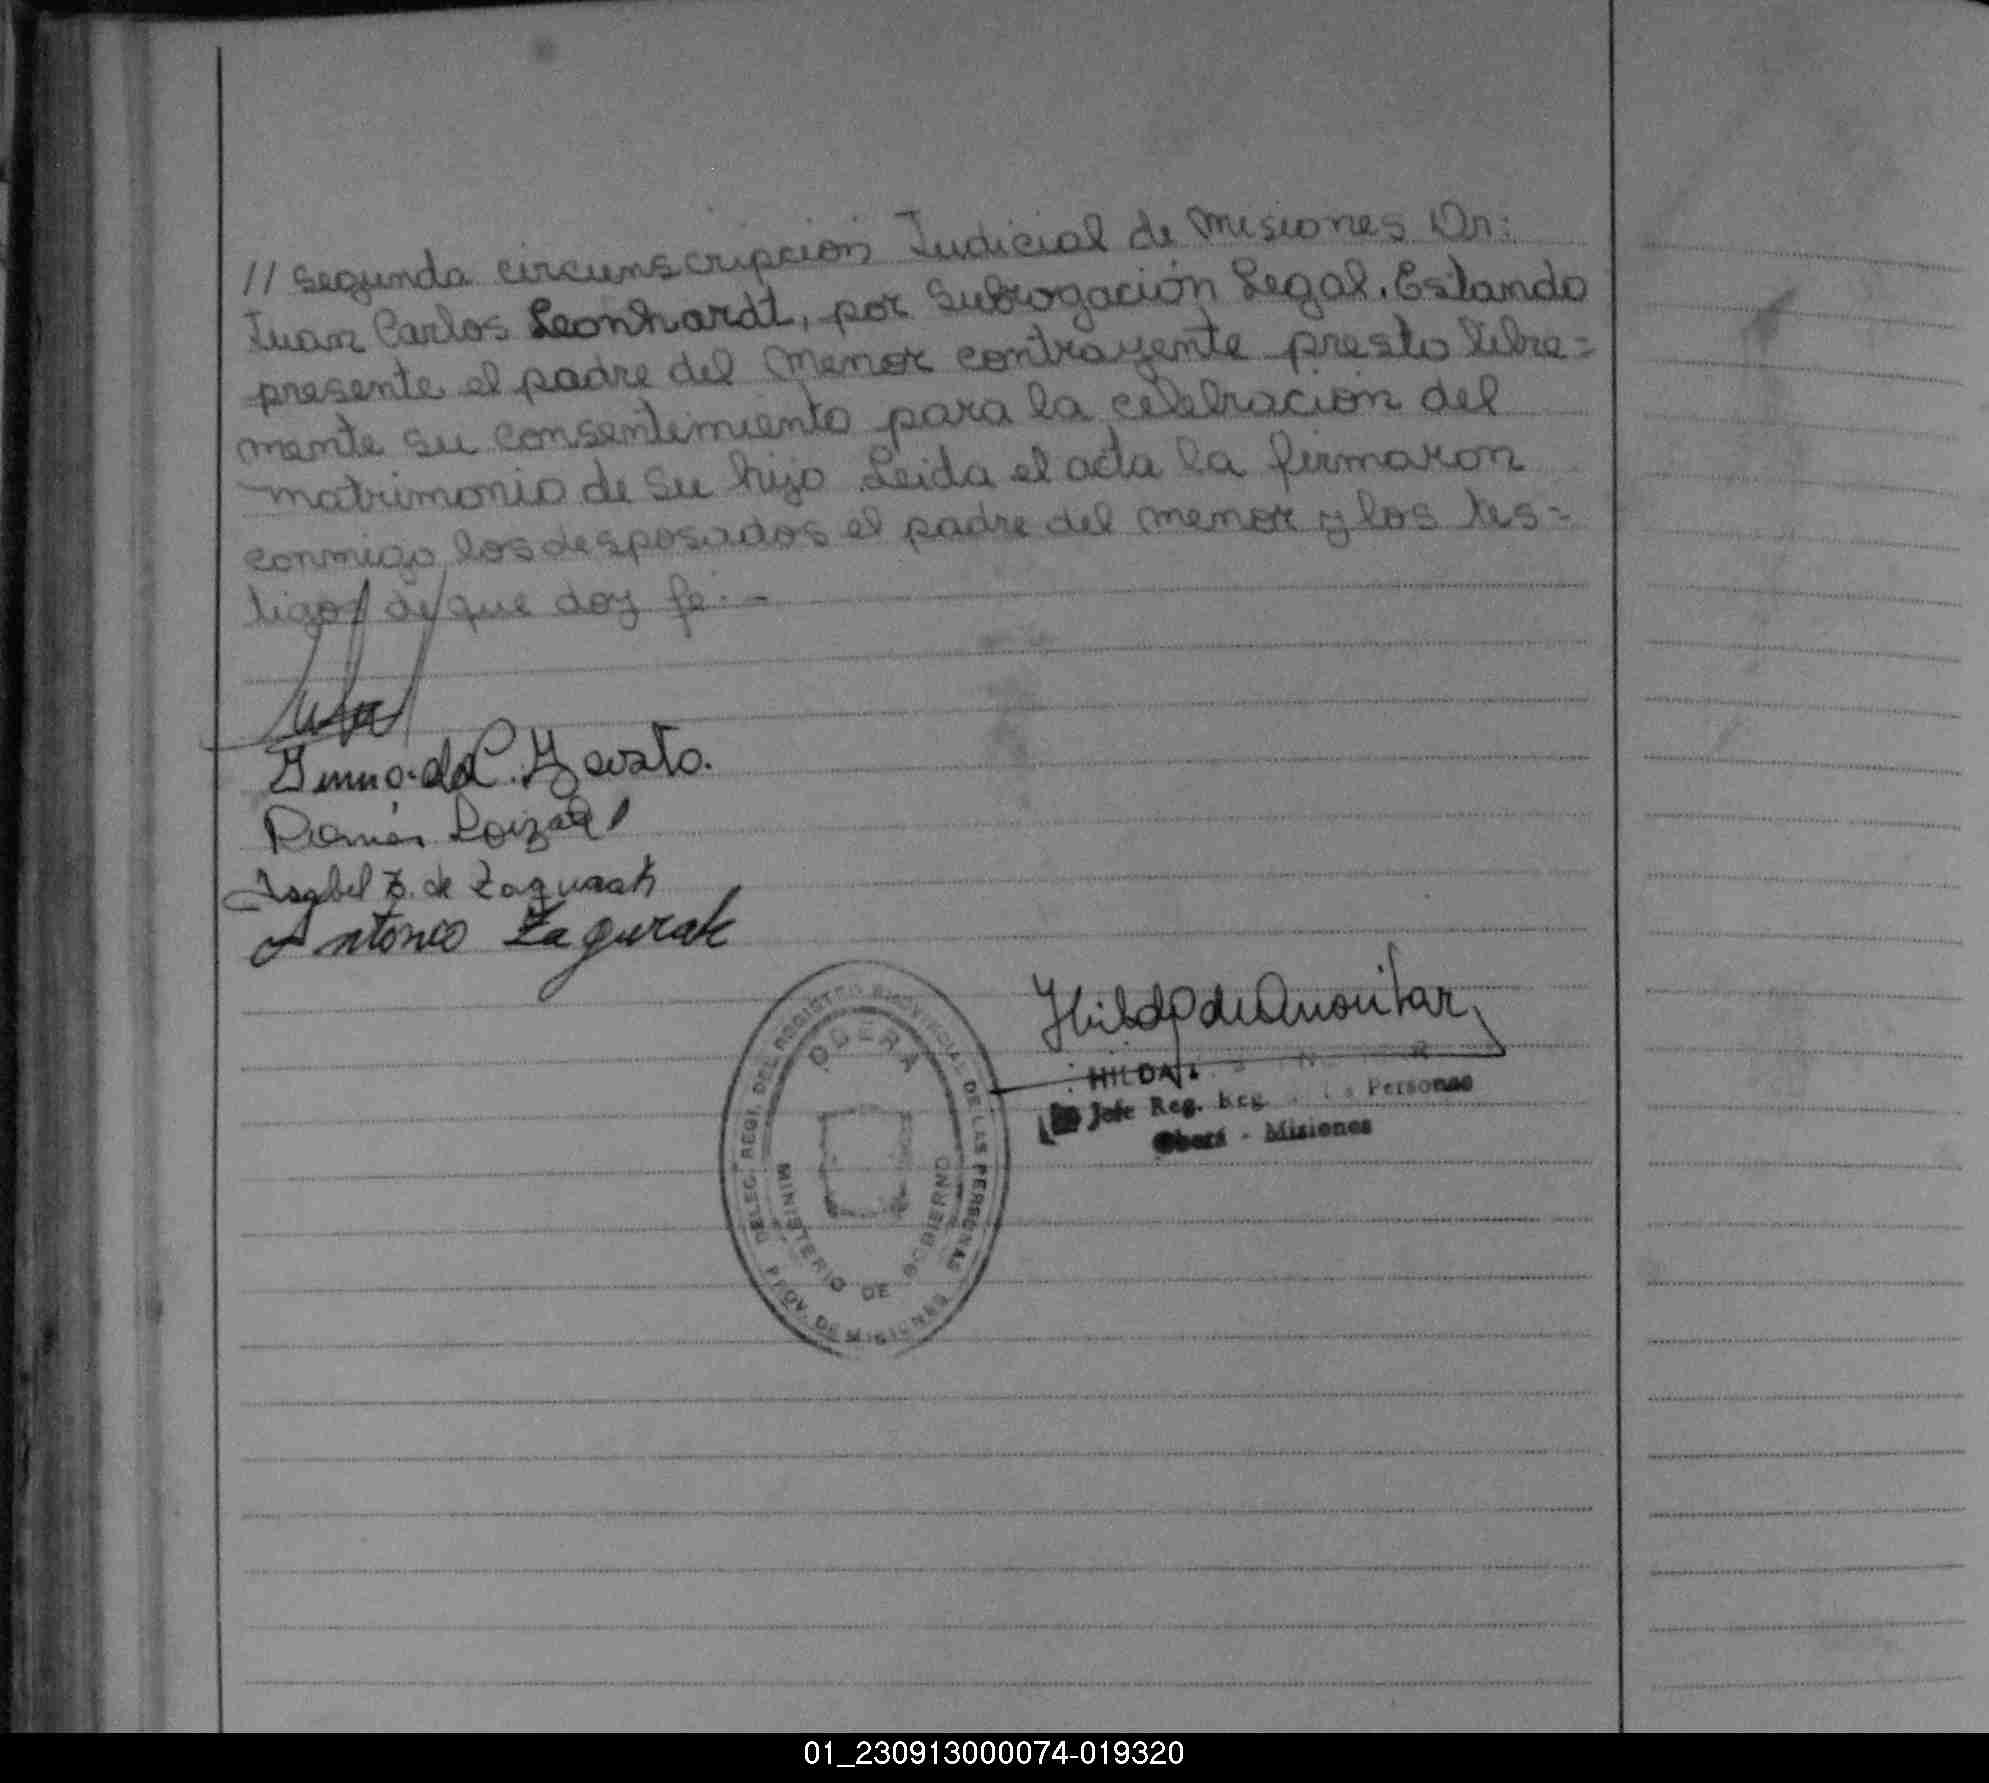 // segunda circunscripción Judicial de Misiones Dr:
Juan Carlos Leonhardt, por Subrogación Legal. Estando
presente el padre del menor contrayente presto libre=
mente su consentimiento para la celebración del
matrimonio de su hijo. Leida el acta la firmaron
conmigo los desposados el padre del menor y los tes=
tigos de que doy fé.-
Ramón
Isabel Z. de Zagurak
Antonio Zagurak
Hilda de
HILDA
Jefe Reg. Personas
Oberá - Misiones
DELEG. REGI. DEL REGISTRO PROVINCIAL DE LAS PERSONAS
OBERA
MINISTERIO DE GOBIERNO
PROV. DE MISIONES
01_230913000074-019320